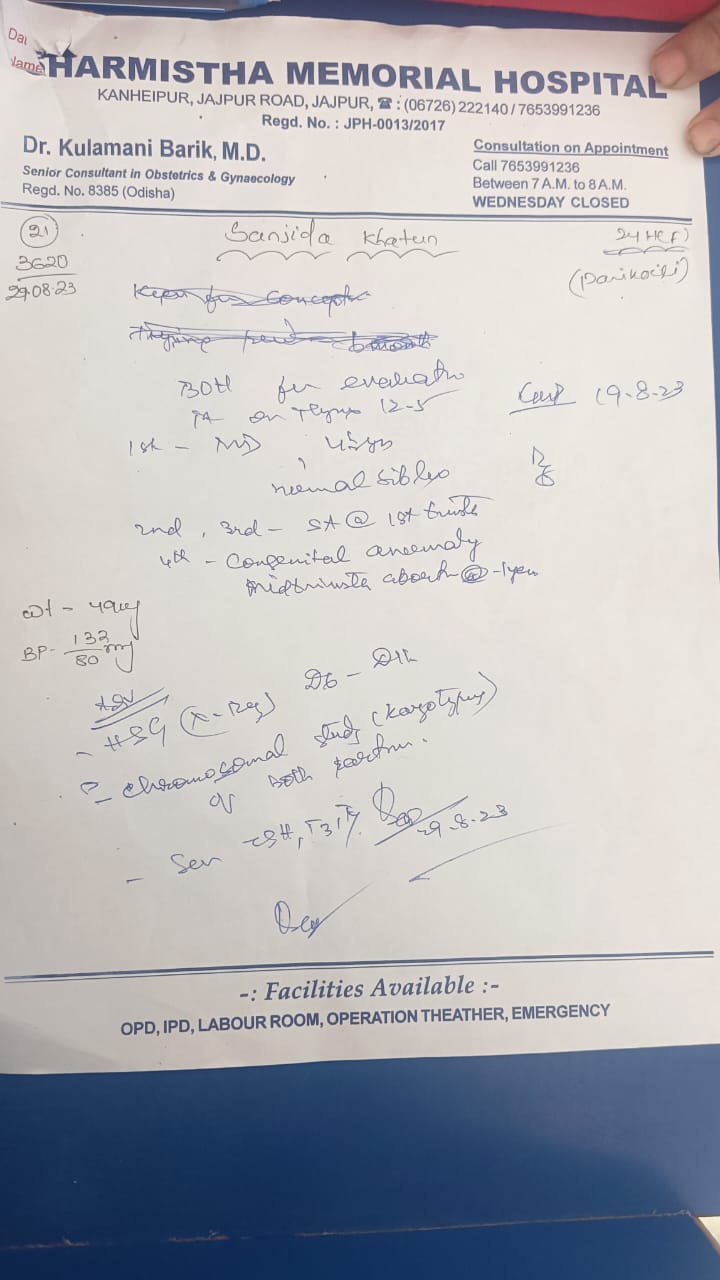 Dat
Name
HARMISTHA MEMORIAL HOSPITAL
KANHEIPUR, JAJPUR ROAD, JAJPUR, ☎ : (06726) 222140 / 7653991236
Regd. No. : JPH-0013/2017
Dr. Kulamani Barik, M.D.
Senior Consultant in Obstetrics & Gynaecology
Regd. No. 8385 (Odisha)
Consultation on Appointment
Call 7653991236
Between 7 A.M. to 8 A.M.
WEDNESDAY CLOSED
21
3620
29.08.23
Sanjida Khatun
24 (F)
BOH for evaluatn
on 12-5
19-8-23
1st -
normal
2nd, 3rd - SA @ 1st
4th - Congenital
abort @ -1year
wt - 49kg
BP - 132/80
Adv
- HSG (X-Ray) D6 - D11
- chromosomal study (karotyping)
of both partner.
- Ser TSH, T3, T4
29.8.23
-: Facilities Available :-
OPD, IPD, LABOUR ROOM, OPERATION THEATHER, EMERGENCY